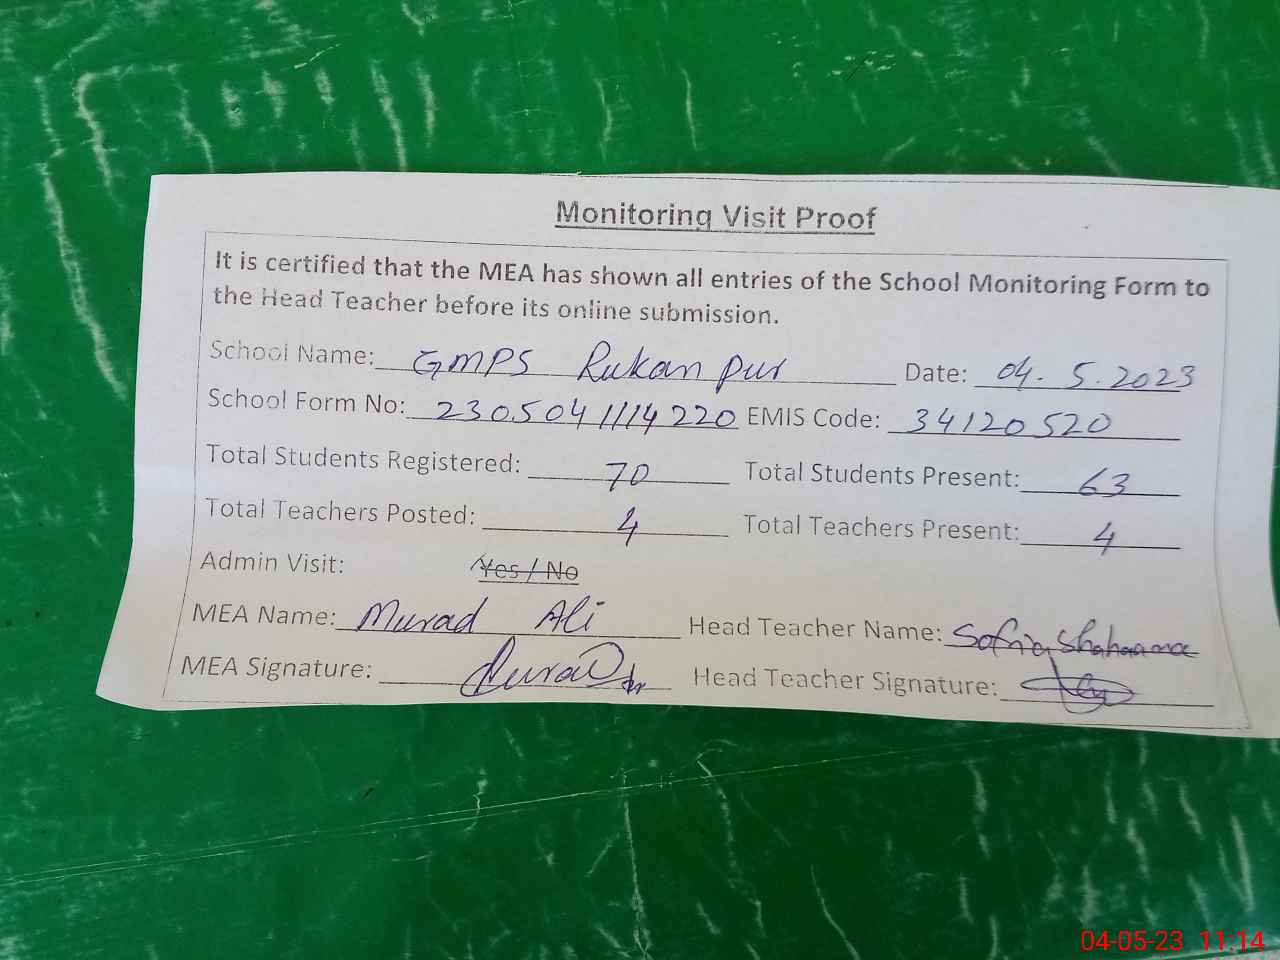 Monitoring Visit Proof
It is certified that the MEA has shown all entries of the School Monitoring Form to
the Head Teacher before its online submission.
School Name: GMPS Rukan pur Date: 04. 5. 2023
School Form No: 2305041114220 EMIS Code: 34120520
Total Students Registered: 70 Total Students Present: 63
Total Teachers Posted: 4 Total Teachers Present: 4
Admin Visit: Yes / No
MEA Name: Murad Ali Head Teacher Name: Sofia
MEA Signature: Head Teacher Signature:
04-05-23 11:14